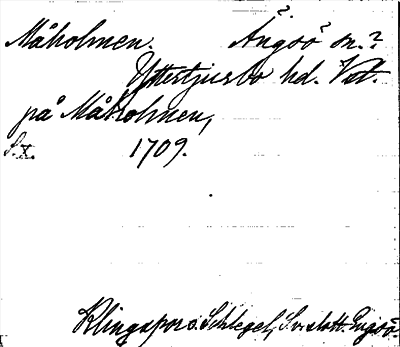 Måholmen. Ängsö? sn.?
Yttertjurbo hd. Vst.
på Måholmen,
S.X. 1709.
Klingspor o. Schlegel, Sv. slott. Engsö.